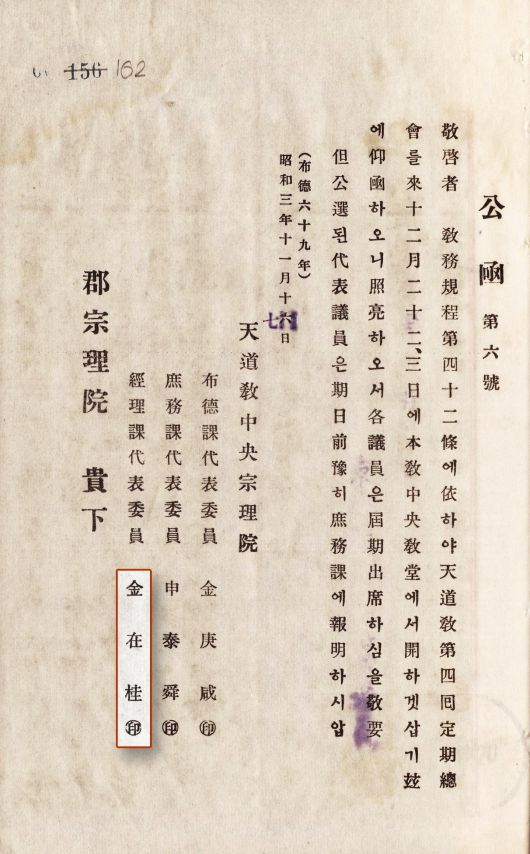 156 162
公函 第六號
敬啓者 敎務規程第四十二條에依하야天道敎第四回定期總
會를來十二月二十二、三日에本敎中央敎堂에서開하겟삽기玆
에仰函하오니照亮하오서各議員은屆期出席하심을敬要
但公選된代表議員은期日前豫히庶務課에報明하시압
(布德六十九年)
昭和三年十一月十七日
天道敎中央宗理院
布德課代表委員 金庚咸㊞
庶務課代表委員 申泰舜㊞
經理課代表委員 金在桂㊞
郡宗理院 貴下